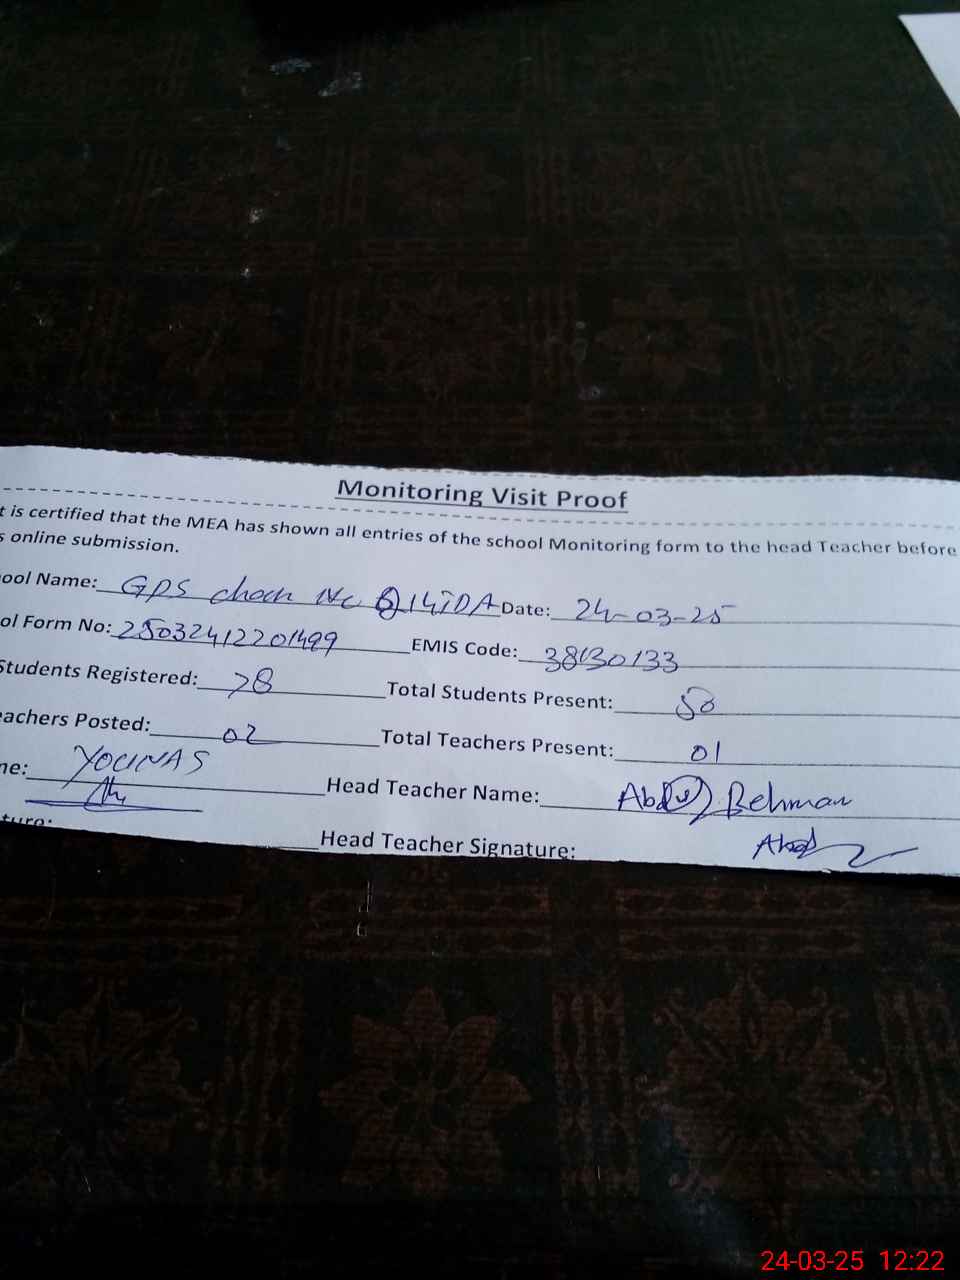 Monitoring Visit Proof
t is certified that the MEA has shown all entries of the school Monitoring form to the head Teacher before
s online submission.
ool Name: GPS chack No 14TDA Date: 24-03-25
ol Form No: 25032412201499 EMIS Code: 38130133
Students Registered: 78 Total Students Present: 50
eachers Posted: 02 Total Teachers Present: 01
ne: YOUNAS Head Teacher Name: Abdul Rehman
ture: Head Teacher Signature:
24-03-25 12:22